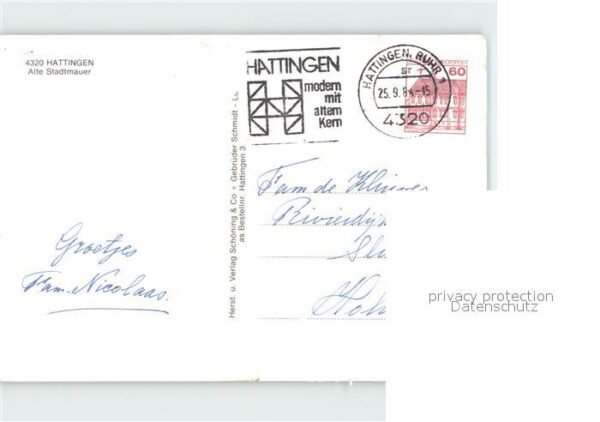 4320 HATTINGEN
Alte Stadtmauer
HATTINGEN
modern
mit
altem
Kern
HATTINGEN, RUHR 1
sr
25.9.84-15
4320
60
Herst. u. Verlag Schöning & Co + Gebrüder Schmidt - Lü
as Bestellnr. Hattingen 3
Groetjes
Fam. Nicolaas.
Fam de
Rivierdij
Sli
Hol
privacy protection
Datenschutz